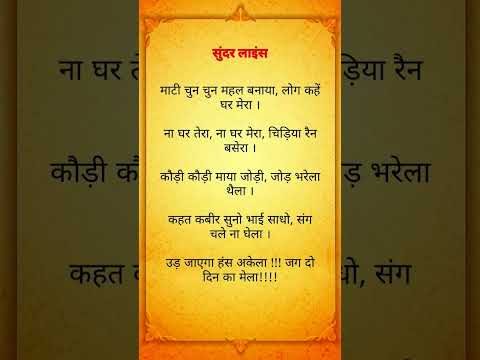 सुंदर लाइंस
माटी चुन चुन महल बनाया, लोग कहें
घर मेरा ।
ना घर तेरा, ना घर मेरा, चिड़िया रैन
बसेरा ।
कौड़ी कौड़ी माया जोड़ी, जोड़ भरेला
थैला ।
कहत कबीर सुनो भाई साधो, संग
चले ना घेला ।
उड़ जाएगा हंस अकेला !!! जग दो
दिन का मेला!!!!
ना घर ते
ड़िया रैन
कौड़ी क
भरेला
कहत क
संग